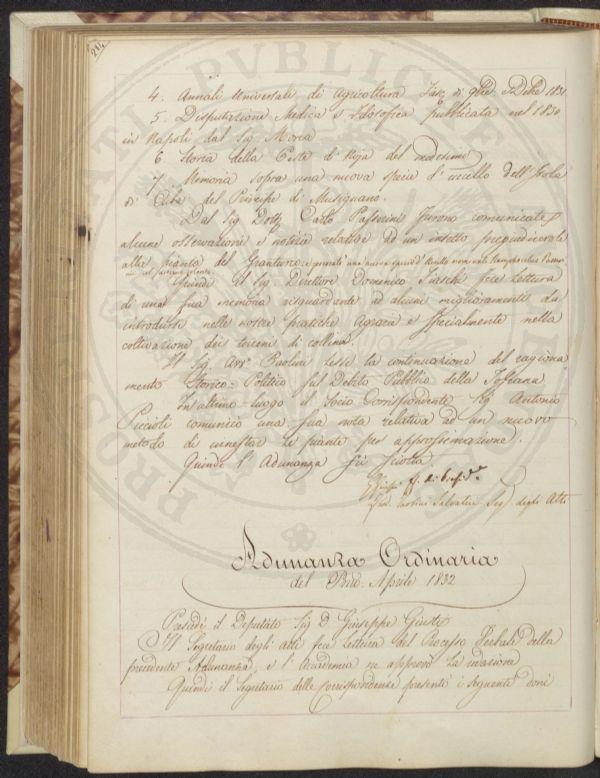 4. Annali Universale di Agricoltura Fasc. di 9bre Xbre 1831
5. Disputazione Medica e Filosofica pubblicata nel 1830
in Napoli dal Sig
6. Storia della Peste di del medesimo
7. Memoria sopra una nuova specie d'uccello dell'Isola
di Cuba del Principe di Musignano.
Dal Sig Dott. Carlo Passerini furono comunicate
alcune osservazioni e notizie relative ad un insetto pregiudicevole
alla pianta del Granturco e presentò una nuova specie d'
Quindi il Sig. Direttore Domenico fece Lettura
di una sua memoria risguardante ad alcuni miglioramenti da
introdursi nelle nostre pratiche Agrarie e specialmente nella
coltivazione dei terreni di collina.
Il Sig Avv. Paolini lesse la continuazione del ragiona
mento Storico=Politico sul Debito Pubblico della Toscana
In ultimo luogo il Socio Corrispondente Sig Antonio
Piccioli comunicò una sua nota relativa ad un nuovo
metodo di innestar le piante per approssimazione.
Quindi l'Adunanza fù sciolta
Salvatic Seg. degli Atti
Adunanza Ordinaria
del Aprile 1832
Presiede il Deputato Sig D Giuseppe Giusti
Il Segretario degli atti fece Lettura del Processo Verbale della
precedente Adunanza, e l'Accademia ne approvò la redazione
Quindi il Segretario delle Corrispondenze presentò i seguenti doni